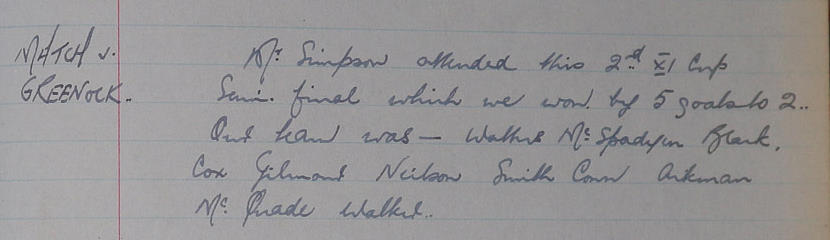 MATCH v. Mr Simpson attended this 2nd XI Cup
GREENOCK. Semi. final which we won. by 5 goals to 2..
Our team was — Walker Mc Spadyen Black.
Cox Gilmour Neilson Smith Conn Aikman
Mc Quade Walker..